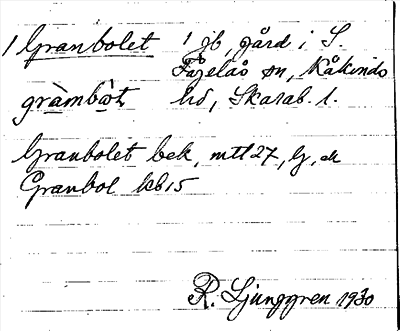 1 Granbolet 1 jb, gård i S.
Fågelås sn, Kåkinds
gràmbòt hd, Skarab. l.
Granbolet bek, mtl 27, G, ek
Granbol kb 15
R. Ljunggren 1930